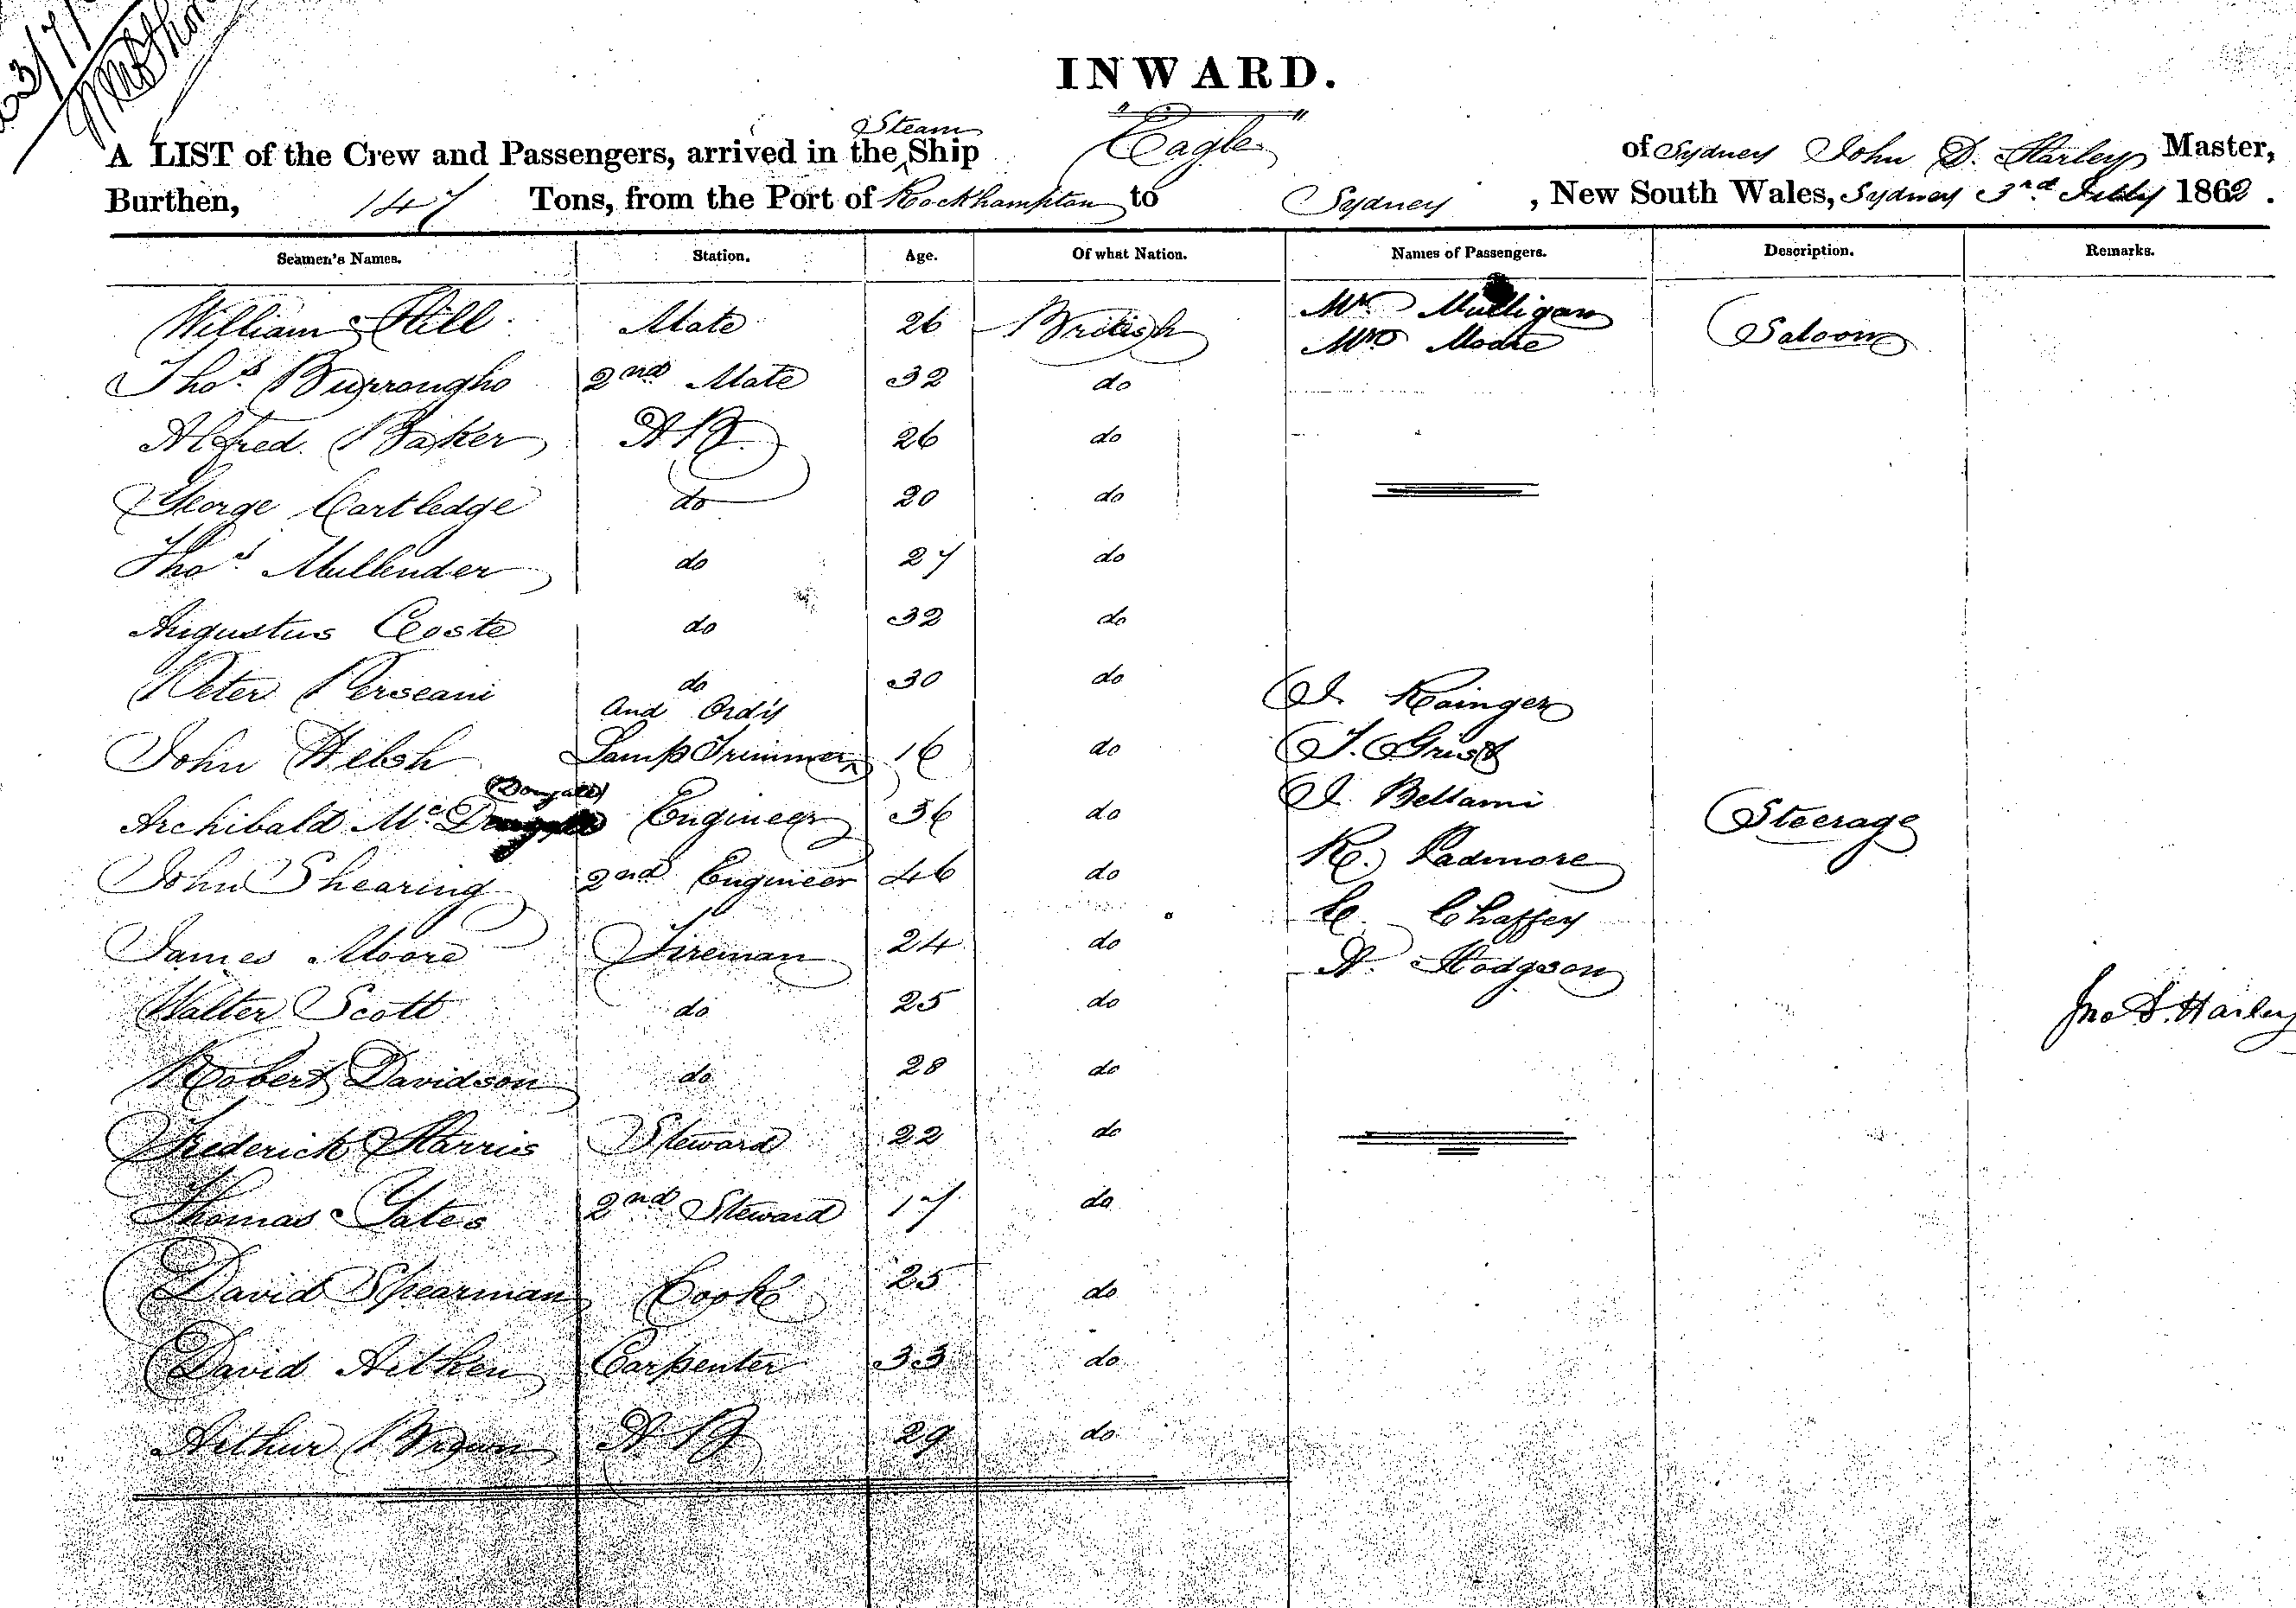 INWARD.
A LIST of the Crew and Passengers, arrived in the Steam Ship "Eagle" of Sydney John S. Harley Master,
Burthen, 147 Tons, from the Port of Rockhampton to Sydney, New South Wales, Sydney 3rd 1862.
Seamen's Names. Station. Age. Of what Nation. Names of Passengers. Description. Remarks.
William Hill Mate 26 British Mr Mulligan Saloon
Moore
Thos Burroughs 2nd Mate 32 do
Alfred Baker AB 26 do
George Cartledge do 20 do
Thos Mullender do 27 do
Augustus Coste do 32 do
Peter Perseani do 30 do J. Rainger
John Welsh Lamp Trimmer and Ord'y 16 do T. Grust
Archibald McDougall (Dougall) Engineer 36 do J. Bellami Steerage
John Shearing 2nd Engineer 46 do R. Padmore
C. Chaffey
James Moore Fireman 24 do H. Hodgson
Walter Scott do 25 do Jno S. Harley
Robert Davidson do 28 do
Frederick Harris Steward 22 do
Thomas Yates 2nd Steward 17 do
David Spearman Cook 25 do
David Aitken Carpenter 33 do
Arthur Brown AB 29 do